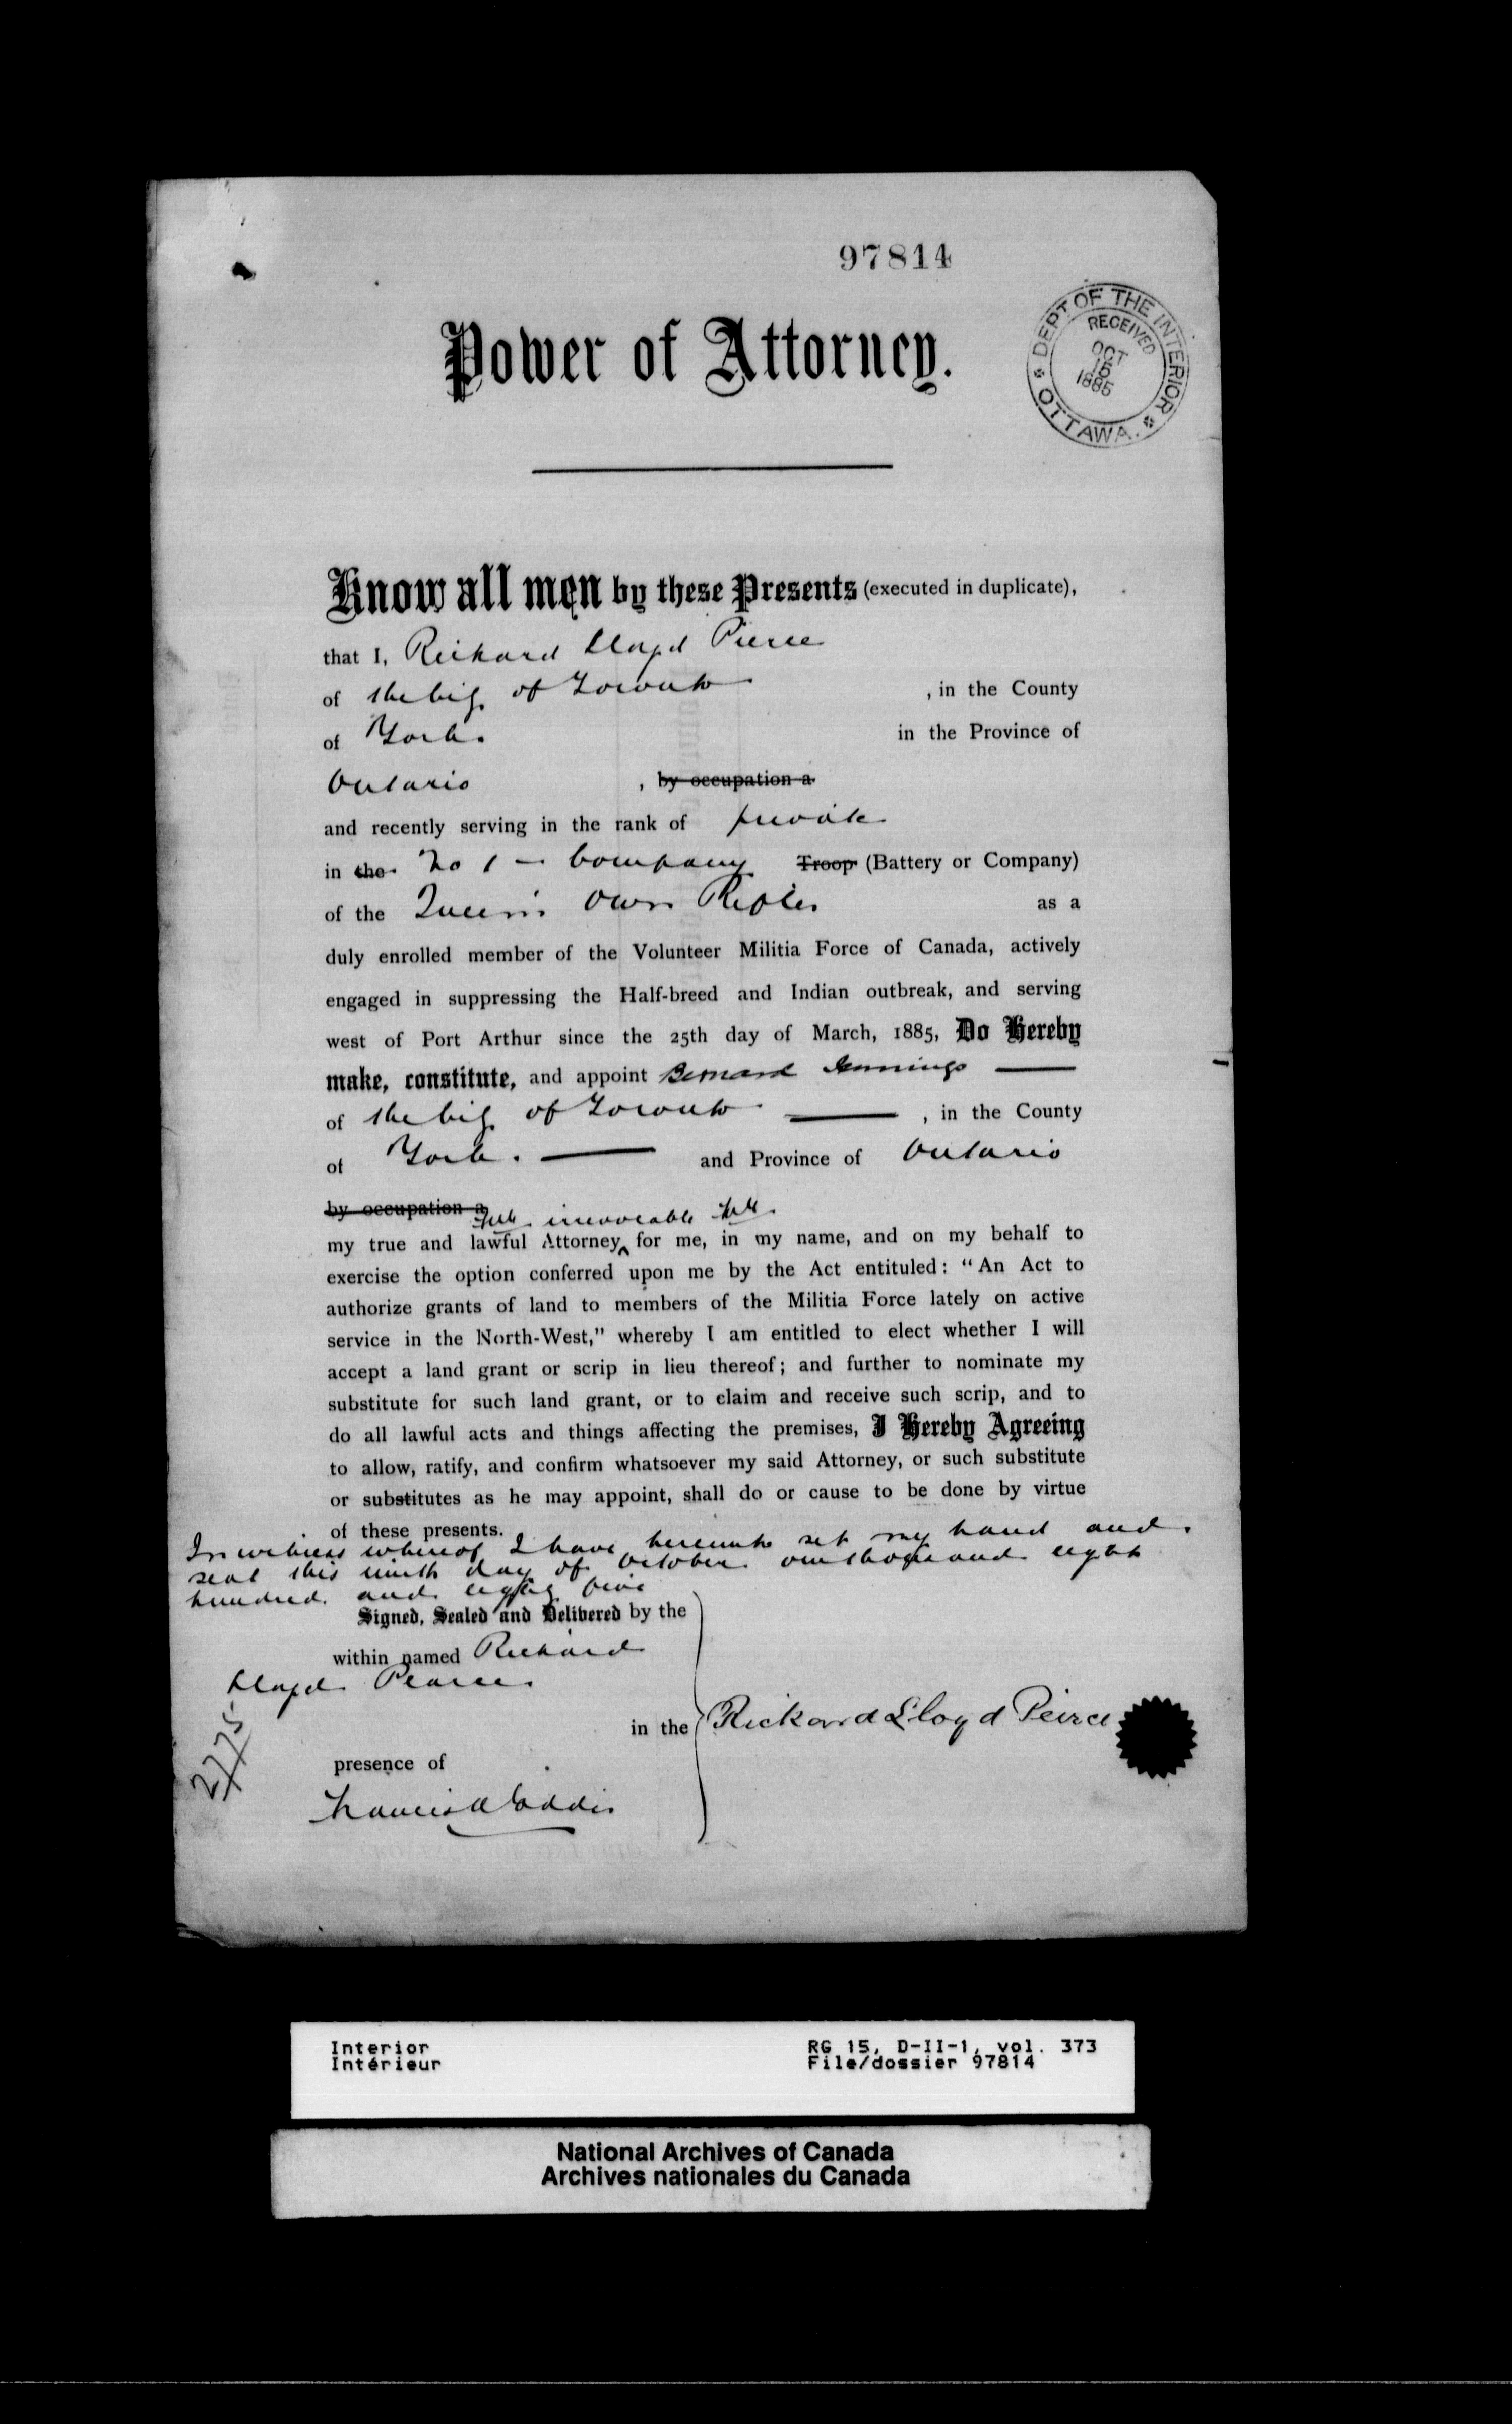 97814
DEPT OF THE INTERIOR
RECEIVED
OCT
15
1885
OTTAWA.
Power of Attorney.
Know all men by these Presents (executed in duplicate),
that I, Richard Lloyd Pierce
of the City of Toronto , in the County
of York. in the Province of
Ontario , by occupation a
and recently serving in the rank of private
in the No 1 — Company Troop (Battery or Company)
of the Queen's Own Rifles as a
duly enrolled member of the Volunteer Militia Force of Canada, actively
engaged in suppressing the Half-breed and Indian outbreak, and serving
west of Port Arthur since the 25th day of March, 1885, Do Hereby
make, constitute, and appoint Bernard Jennings —
of the City of Toronto — , in the County
of York. — and Province of Ontario
by occupation a
irrevocable
my true and lawful Attorney ^ for me, in my name, and on my behalf to
exercise the option conferred upon me by the Act entituled: "An Act to
authorize grants of land to members of the Militia Force lately on active
service in the North-West," whereby I am entitled to elect whether I will
accept a land grant or scrip in lieu thereof; and further to nominate my
substitute for such land grant, or to claim and receive such scrip, and to
do all lawful acts and things affecting the premises, I Hereby Agreeing
to allow, ratify, and confirm whatsoever my said Attorney, or such substitute
or substitutes as he may appoint, shall do or cause to be done by virtue
of these presents.
In witness whereof I have hereunto set my hand and
seal this ninth day of October one thousand eight
hundred and eighty five
Signed, Sealed and Delivered by the
within named Richard
Lloyd Pearce
in the Rickard Lloyd Peirce
presence of
2775
Interior RG 15, D-II-1, vol. 373
Intérieur File/dossier 97814
National Archives of Canada
Archives nationales du Canada